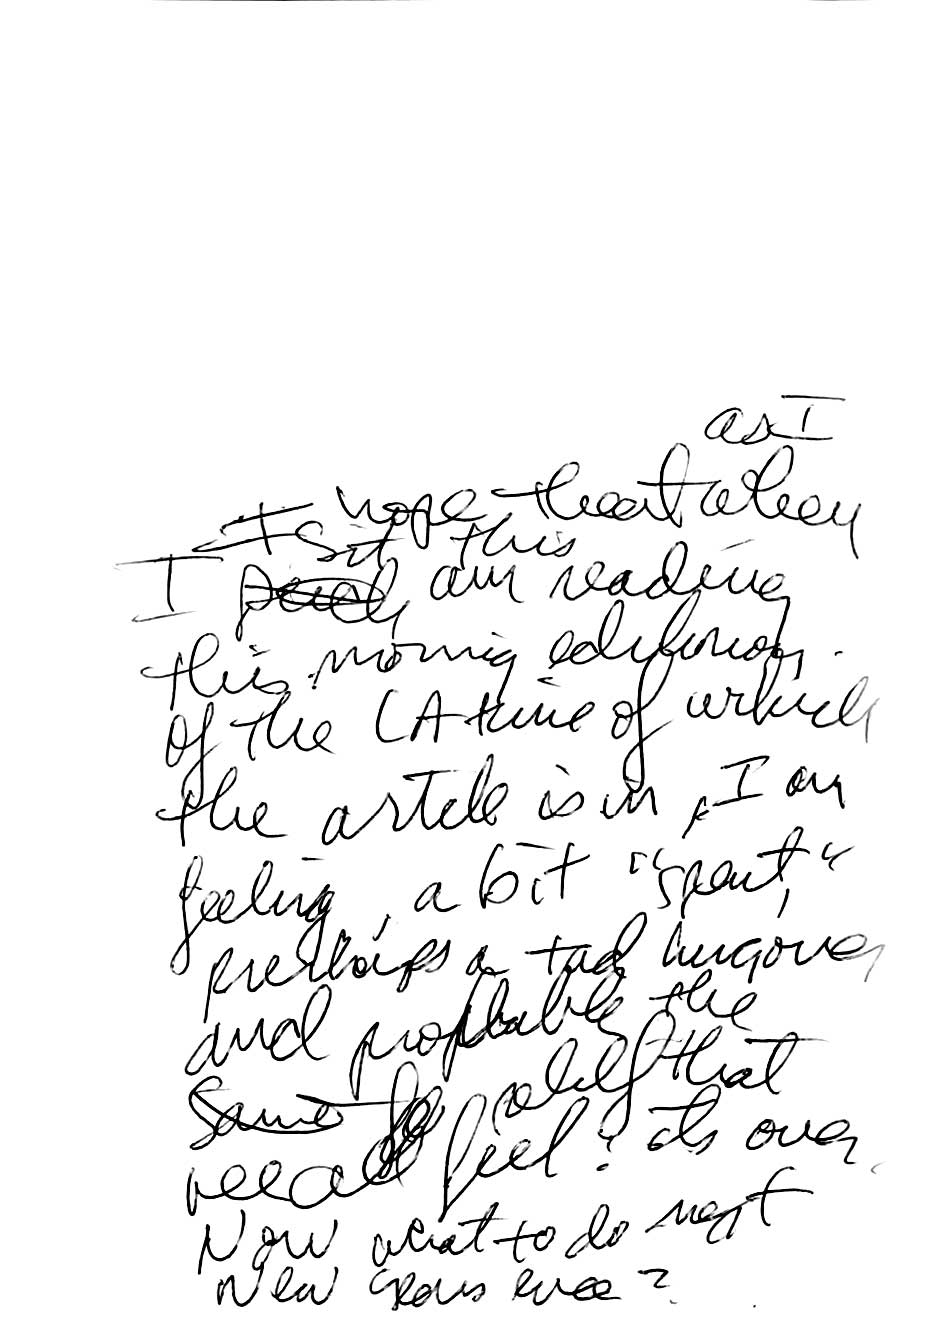 as I
I hope that when
sit this
I am reading
this morning edition
of the LA time of which
the article is in, I am
feeling, a bit "spent,"
perhaps a tad hungover
and probable the
same relief that
we all feel: its over.
Now what to do next
New Years eve?